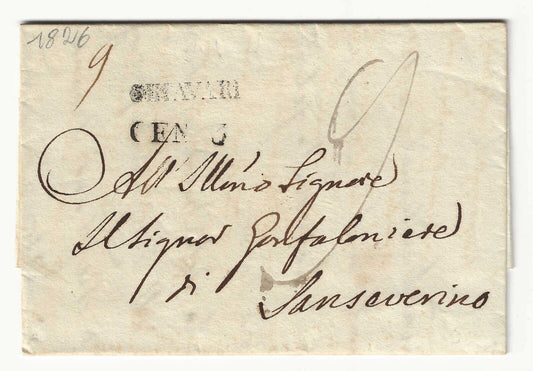 1826
9
CENTO
All' Ill'mo Signore
Il Signor Gonfaloniere
di Sanseverino